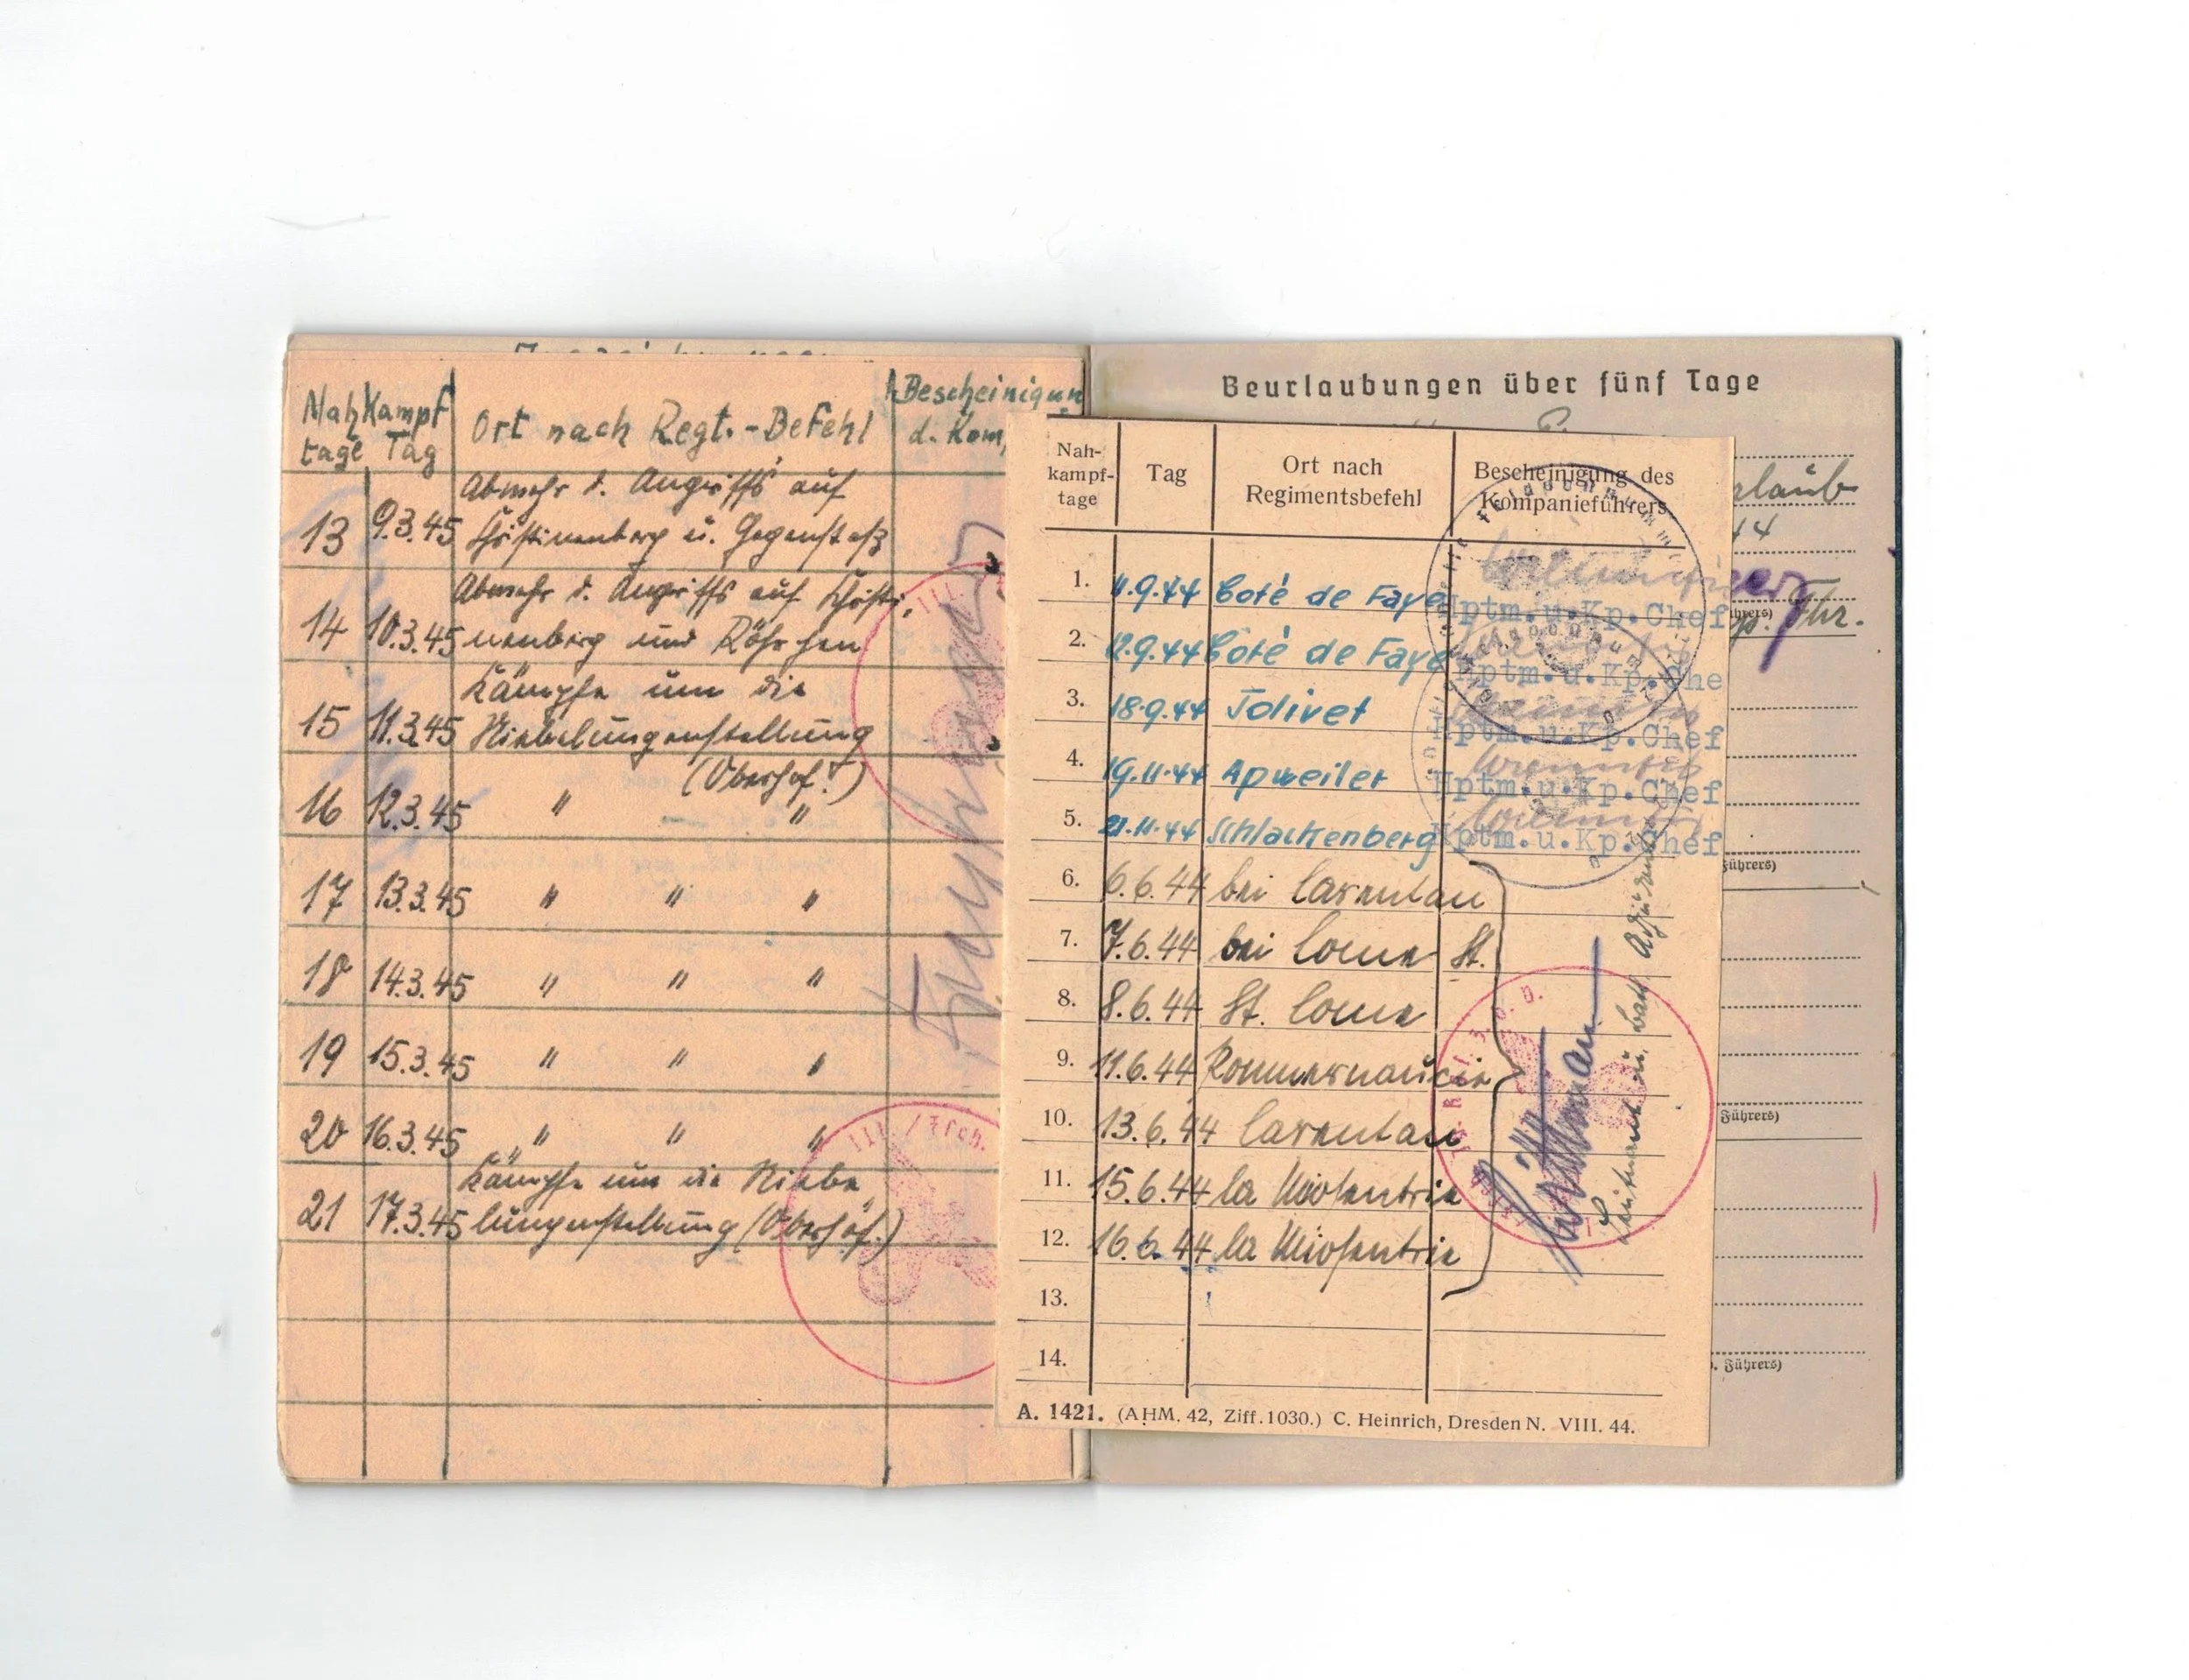 Nahkampf
tage Tag
Ort nach Regt.-Befehl
Bescheinigun
d. Kom
Abwehr d. Angriffs auf
13 9.3.45 Christinenberg u. Gegenstoß
Abwehr d. Angriffs auf Christi-
14 10.3.45 nenberg und Röhrchen
Kämpfe um die
15 11.3.45 Niebelungenstellung
(Oberhof.)
16 12.3.45 " "
17 13.3.45 " " "
18 14.3.45 " " "
19 15.3.45 " " "
20 16.3.45 " " "
Kämpfe um die Niebe
21 17.3.45 lungenstellung (Oberhof.)
III. / Fsch.
Beurlaubungen über fünf Tage
rlaub
44
Fhr.
Führers)
Führers)
. Führers)
Nah-
kampf-
tage
Tag
Ort nach
Regimentsbefehl
Bescheinigung des
Kompanieführers
1. 11.9.44 Coté de Faye Hptm.u.Kp.Chef
2. 12.9.44 Coté de Faye Hptm.u.Kp.Che
3. 18.9.44 Jolivet Hptm.u.Kp.Chef
4. 19.11.44 Apweiler Hptm.u.Kp.Chef
5. 21.11.44 Schlackenberg Hptm.u.Kp.Chef
6. 6.6.44 bei Carentan
7. 7.6.44 bei Come St.
8. 8.6.44 St. Come
9. 11.6.44
10. 13.6.44 Carentan
11. 15.6.44 la
12. 16.6.44 la
13.
14.
Leutnant u. Batl. Adjudant
A. 1421. (AHM. 42, Ziff. 1030.) C. Heinrich, Dresden N. VIII. 44.